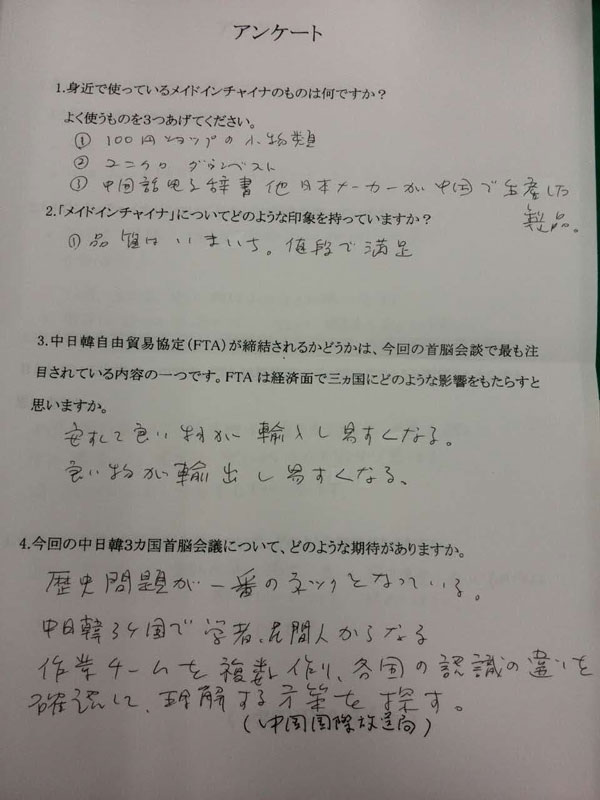 アンケート
1.身近で使っているメイドインチャイナのものは何ですか?
よく使うものを3つあげてください。
① 100円ショップの小物類
② ユニクロ ダウンベスト
③ 中国語電子辞書他日本メーカーが中国で生産した
製品。
2.「メイドインチャイナ」についてどのような印象を持っていますか?
① 品質はいまいち。値段で満足
3.中日韓自由貿易協定(FTA)が締結されるかどうかは、今回の首脳会談で最も注
目されている内容の一つです。FTAは経済面で三ヵ国にどのような影響をもたらすと
思いますか。
安すくて良い物が輸入し易すくなる。
良い物が輸出し易すくなる、
4.今回の中日韓3カ国首脳会議について、どのような期待がありますか。
歴史問題が一番のネックとなっている。
中日韓3ヶ国で学者、民間人からなる
作業チームを複数作り、各国の認識の違いを
確認して、理解する方策を探す。
(中国国際放送局)